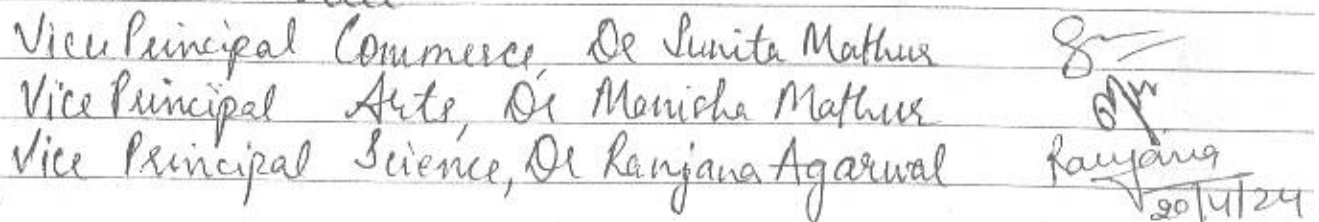 Vice Principal Commerce, Dr Sunita Mathur
Vice Principal Arts, Dr Manisha Mathur
Vice Principal Science, Dr Ranjana Agarwal Ranjana
20/4/24